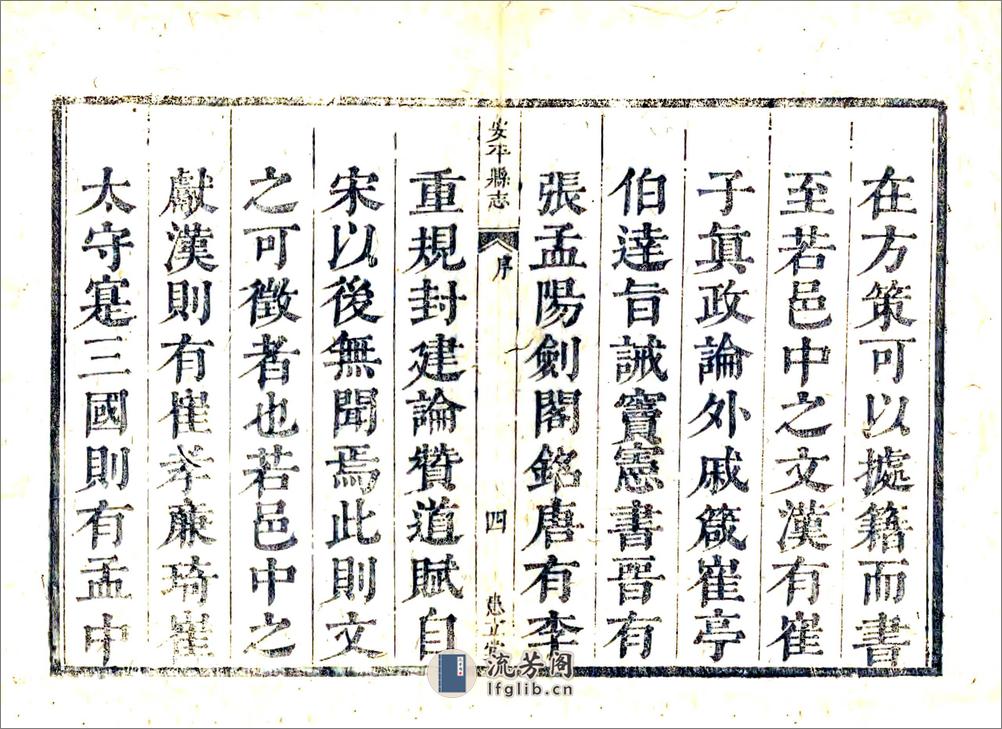 在方策可以摭籍而書
至若邑中之文漢有崔
子眞政論外戚箴崔亭
伯達旨誡竇憲書晉有
張孟陽劍閣銘唐有李
安平縣志 序 四
重規封建論贊道賦自
宋以後無聞焉此則文
之可徵者也若邑中之
獻漢則有崔孝亷琦崔
太守寔三國則有孟中
流芳阁
lfglib.cn